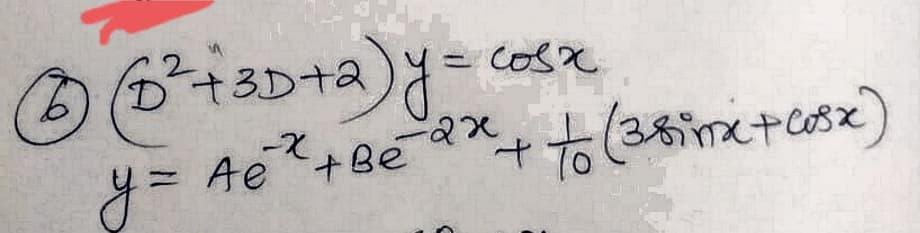 ⑥ (D²+3D+2)y = cosx
y = Ae^-x + Be^-2x + 1/10 (3sinx+cosx)